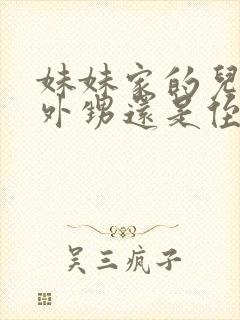 妹妹家的兒
外甥還是侄
吴三疯子